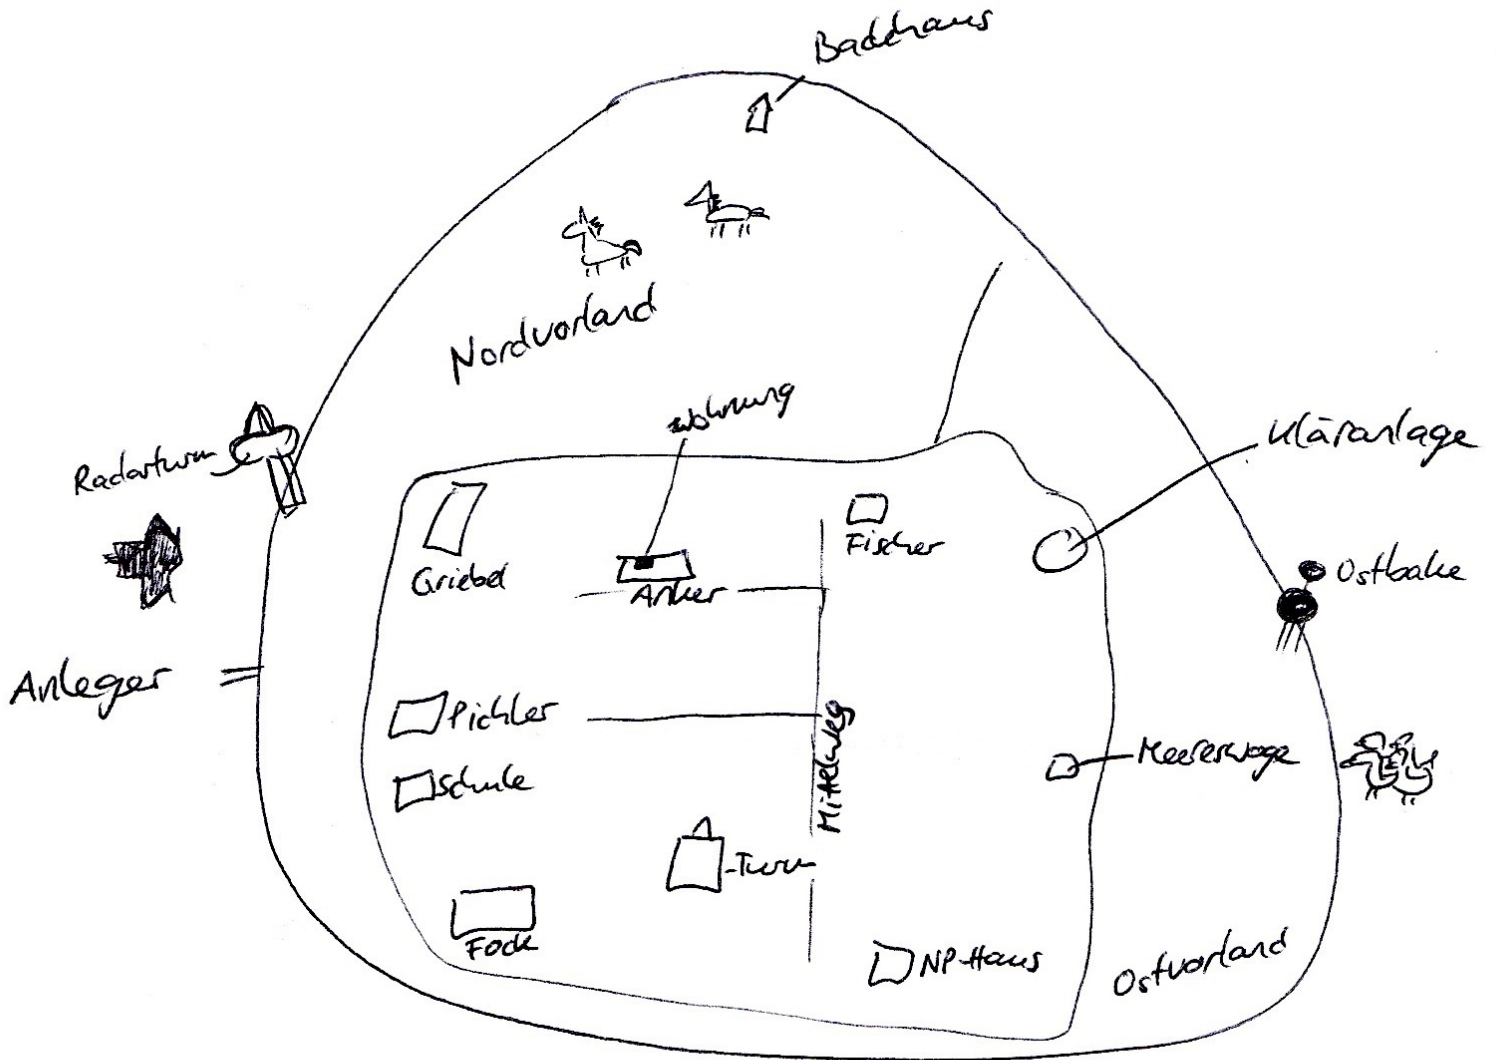 Badehaus
Nordvorland
Wohnung
Radarturm
Kläranlage
Fischer
Griebel
Anker
Ostbake
Anleger
Pichler
Mittelweg
Meereswoge
Schule
Turm
Fock
NP-Haus
Ostvorland